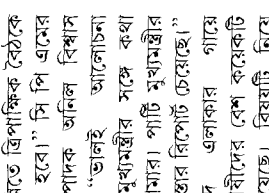 তে ত্রিপাক্ষিক বৈঠকে
হবে।” সি পি এমের
পাদক অনিল বিশ্বাস
“ভালই আলোচনা
মুখ্যমন্ত্রীর সঙ্গে কথা
মার। পার্টি মুখ্যমন্ত্রীর
রিপোর্ট চেয়েছে।”
এলাকার গায়ে
বেশ কয়েকটি
য়েছে। বিষয়টি নিয়ে